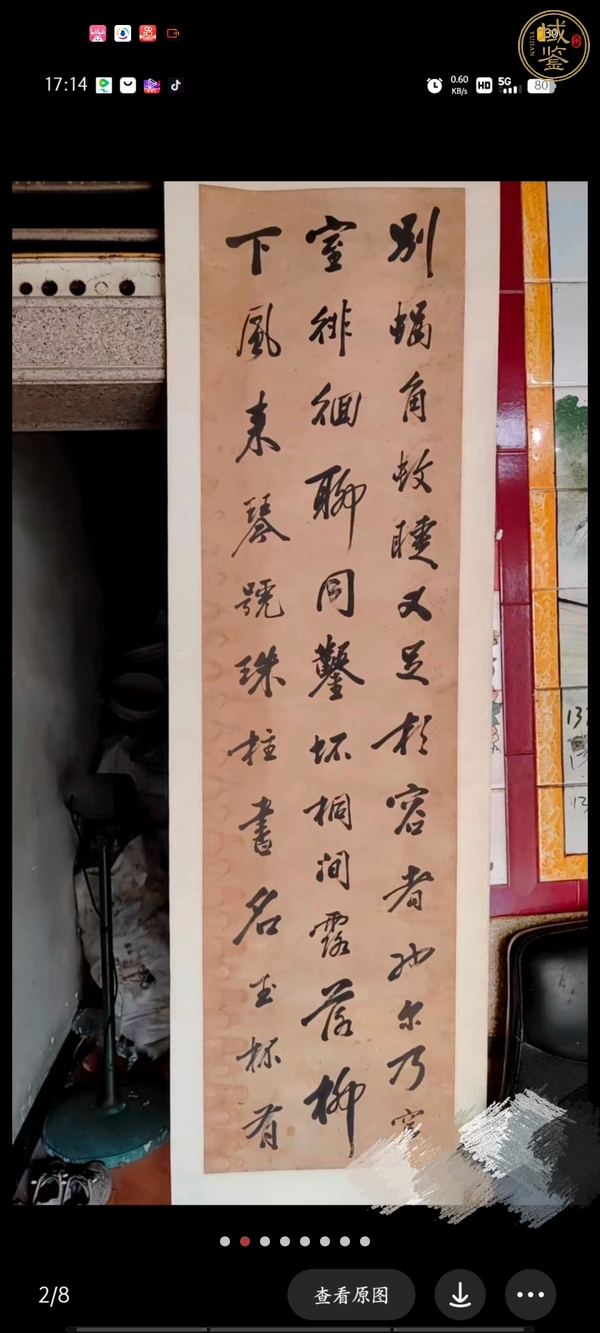 域鉴
YUJIAN
17:14
0.60
KB/s
HD
5G
80
別蝸角蚊睫又足相容者也尔乃
室徘徊聊同鑿坏桐间露落柳
下風来琴號珠柱書名玉杯有
2/8
查看原图